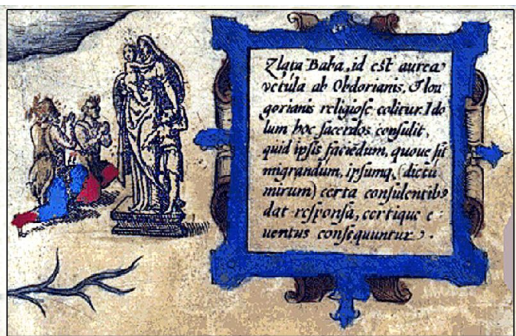 Zlata Baba, id est aurea
vetula ab Obdorianis, & Iou
gorianis religiose colitur. Ido
lum hoc sacerdos consulit,
quid ipsis faciēdum, quoue sit
migrandum, ipsumq, (dictu
mirum) certa consulentib9
dat responsa, certique e-
uentus consequuntur.